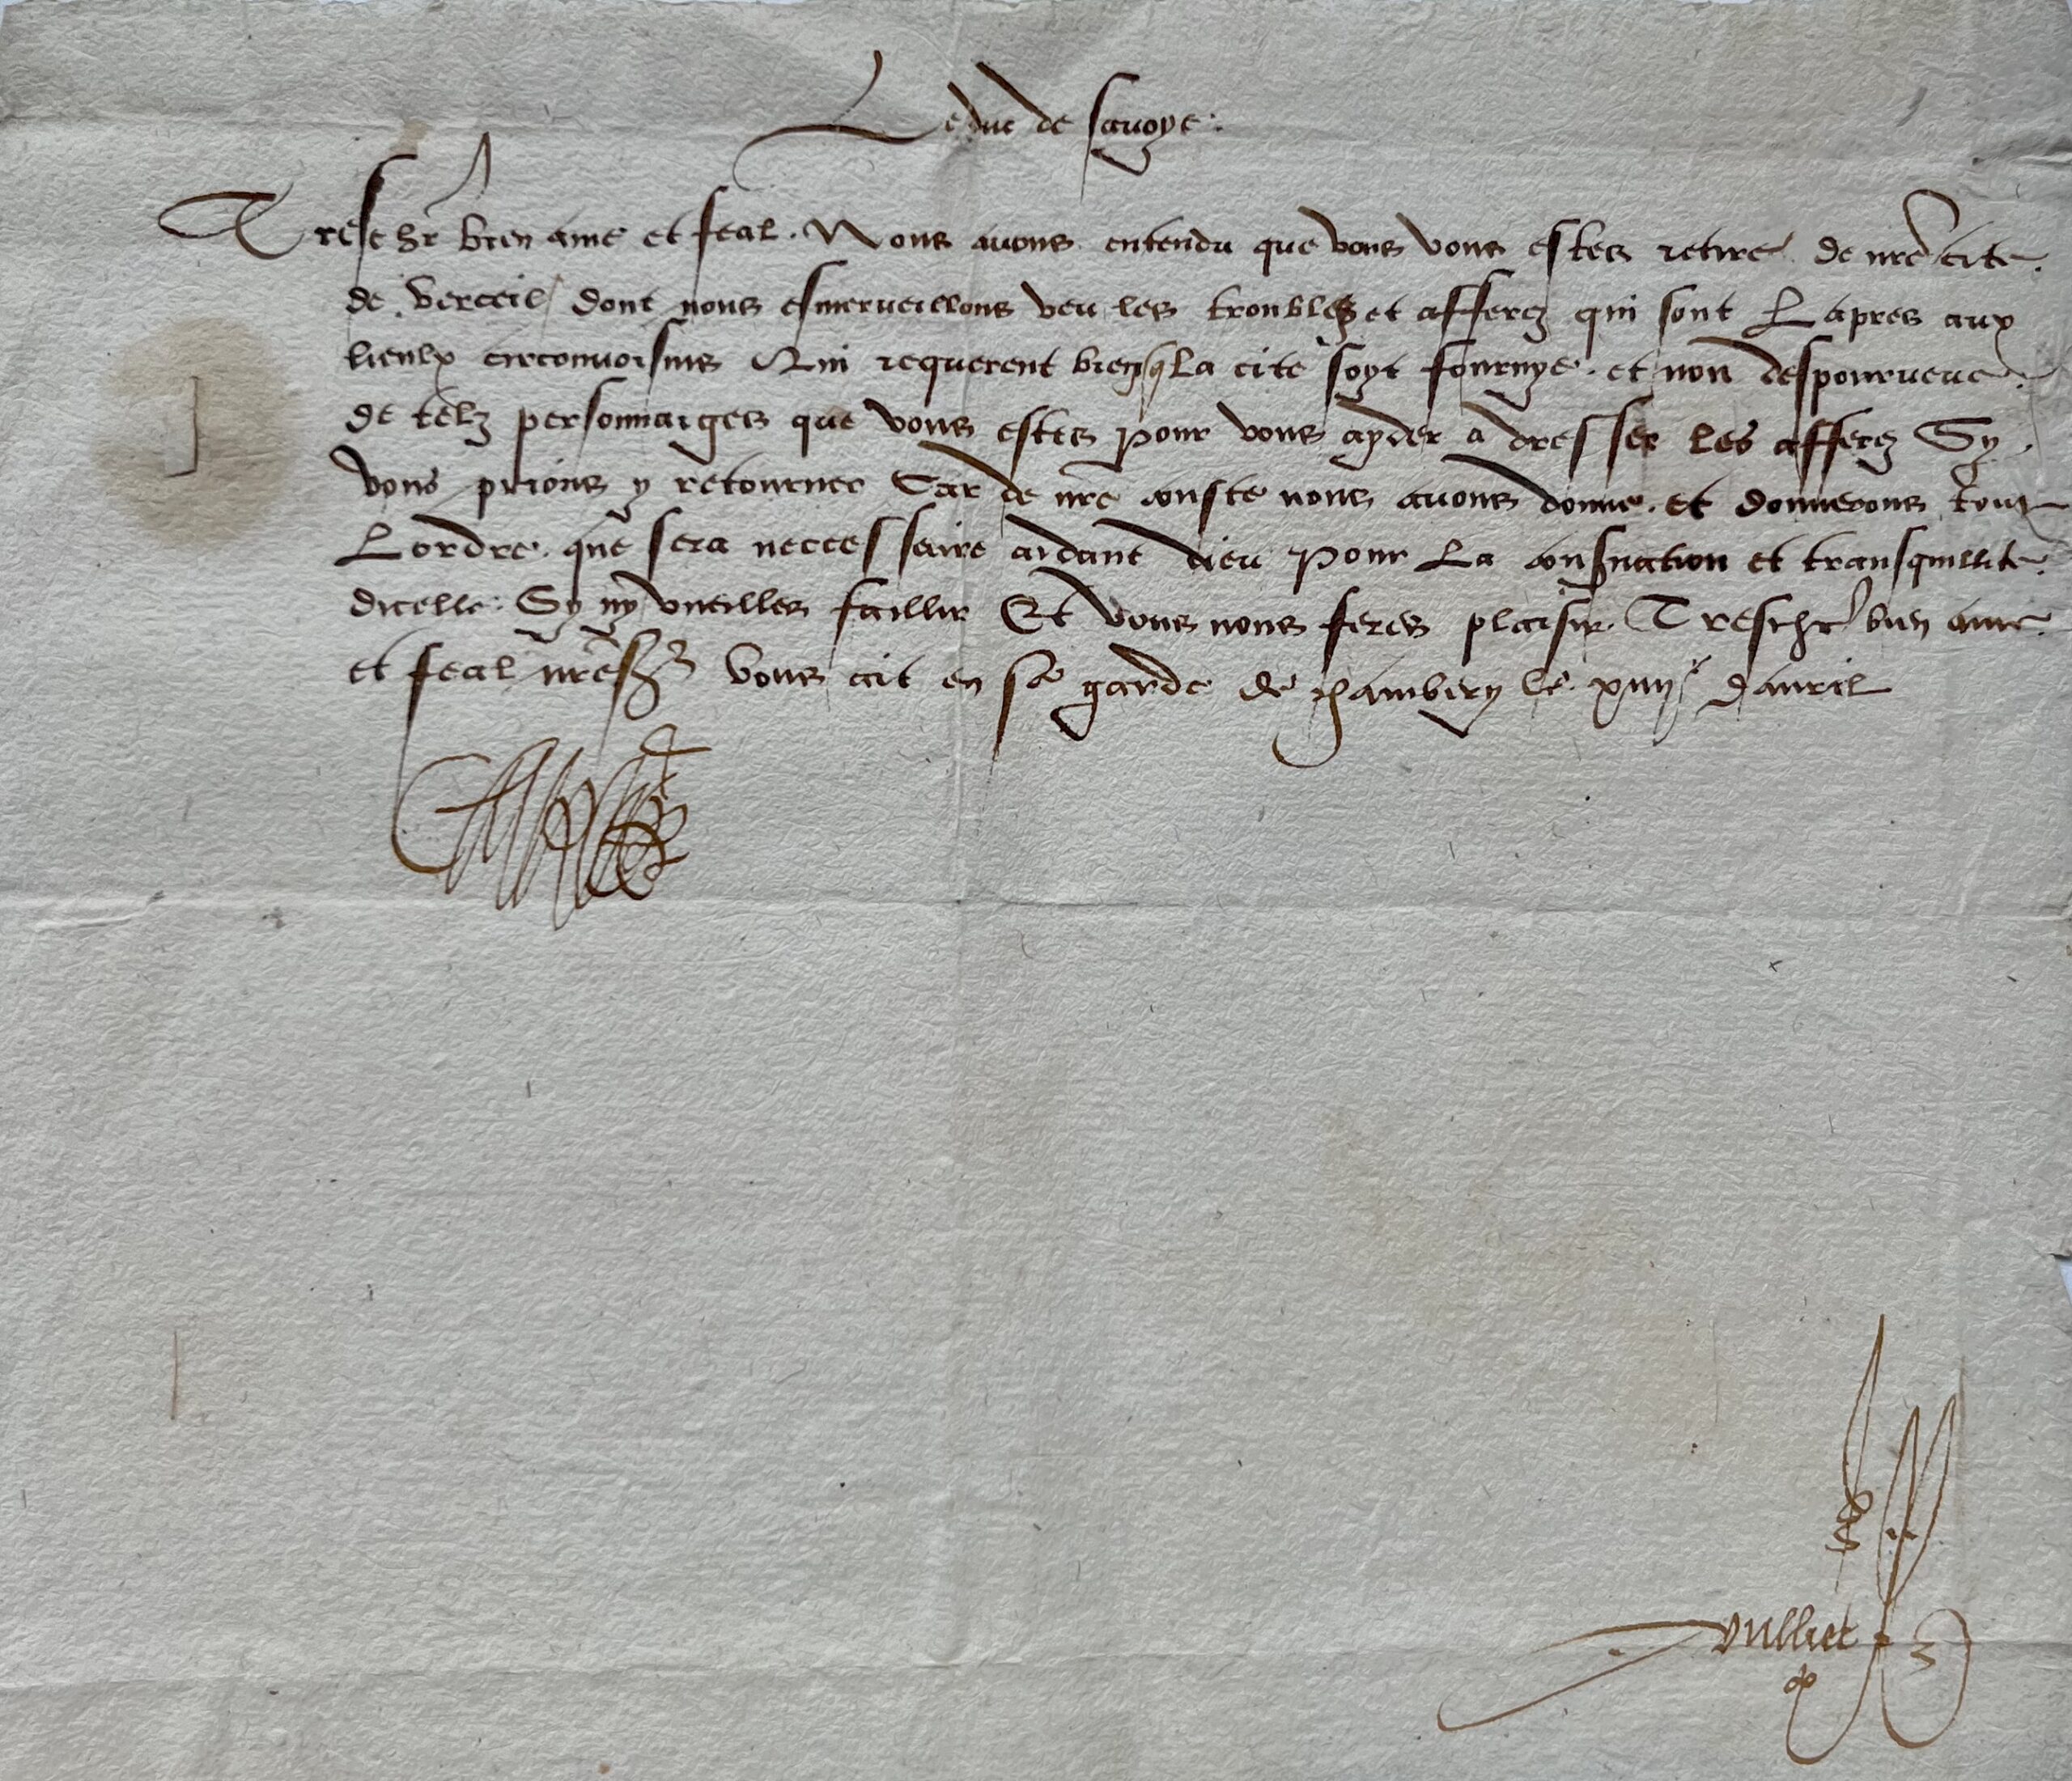 Le duc de savoye.
Treschr bien ame et feal. Nous auons entendu que vous vous estes retire de nre cite
de verceil dont nous esmerueillons veu les troubles et afferez qui sont Lapres aux
lieulx circonuoisins Qui requerent bien q La cite soyt fournye. et non despourueue
de telz personnaiges que vous estes pour vous ayder a dresser les afferez Sy
vous prions y retourner Car de nre couste nous auons donne. et donnerons tout
Lordre. que sera neccessaire aidant dieu pour La consruation et transquillite
dicelle. Sy ny vueilles faillir Et vous nous feres plaisir. Treschr bien ame
et feal nre sr vous ait en sa garde de chambery le xiiij dauril
vulliet